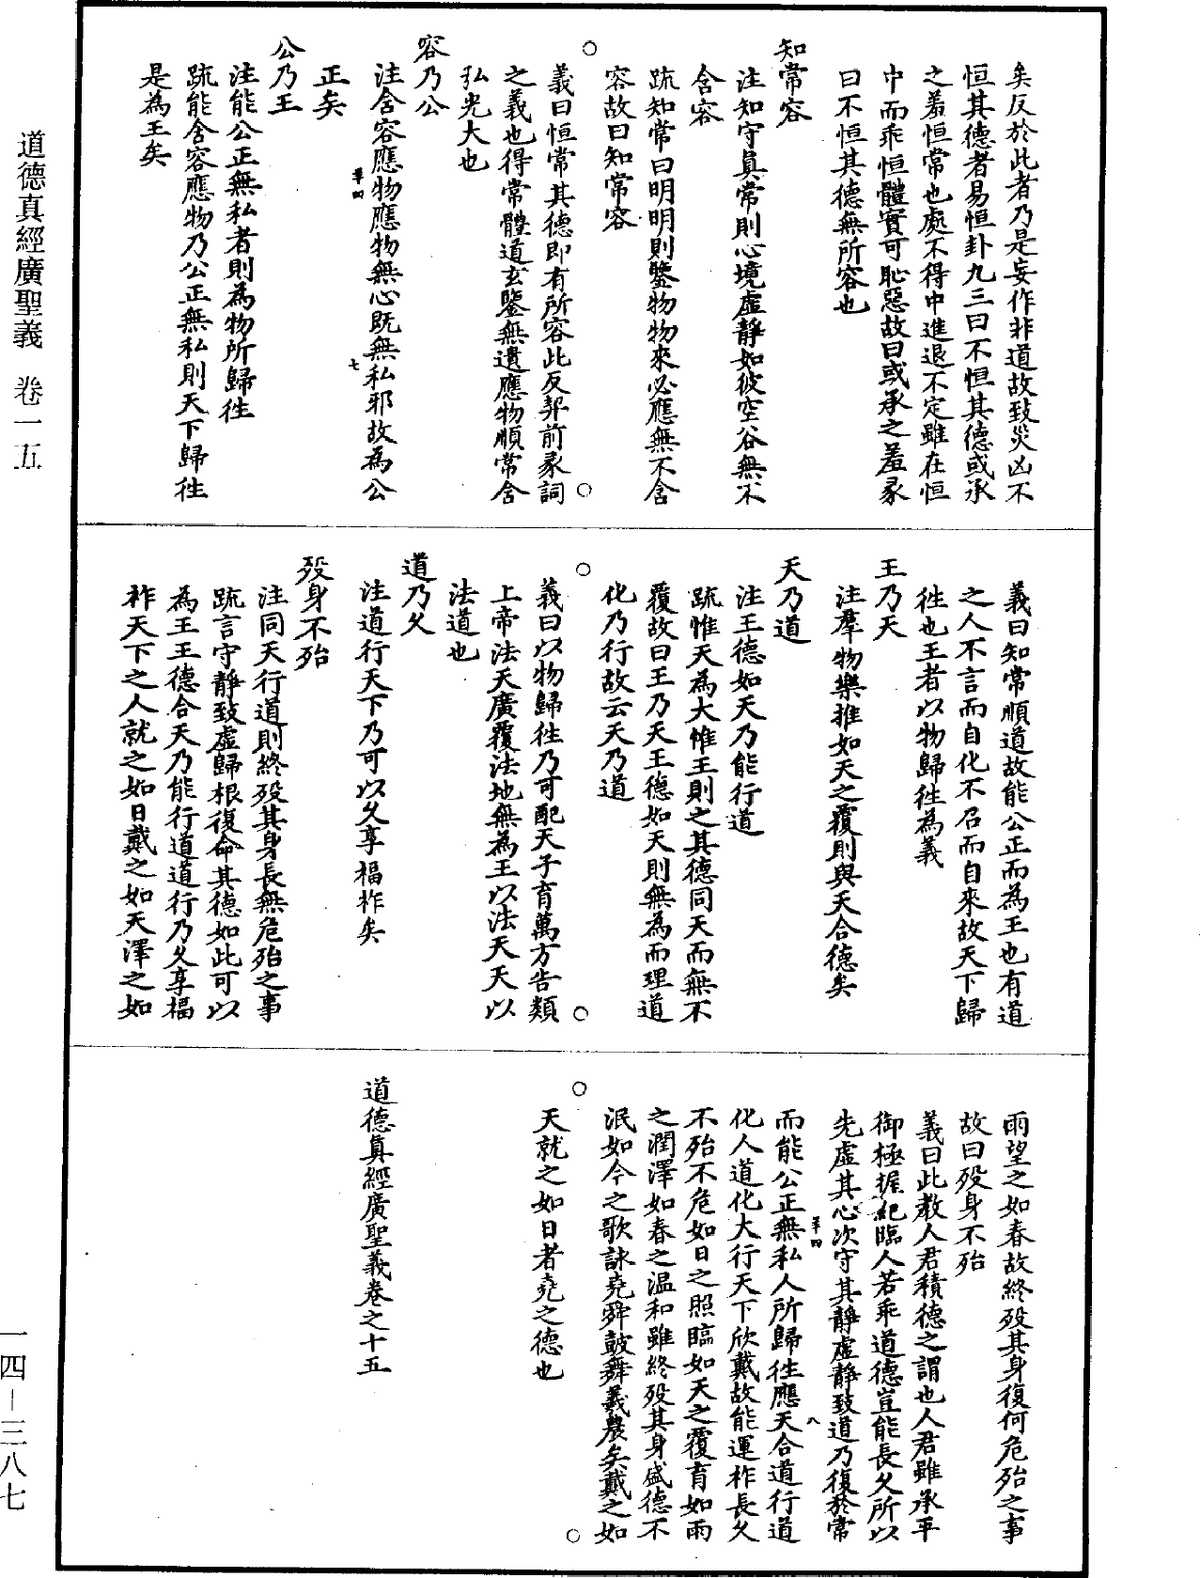 矣反於此者乃是妄作非道故致災凶不
恒其德者易恒卦九三曰不恒其德或承
之羞恒常也處不得中進退不定雖在恒
中而乖恒體實可恥惡故曰或承之羞彖
曰不恒其德無所容也
知常容
注知守真常則心境虛靜如彼空谷無不
含容
疏知常曰明明則鑒物物來必應無不含
容故曰知常容
義曰恒常其德即有所容此反舉前彖詞
之義也得常體道玄鑒無遺應物順常含
弘光大也
容乃公
注含容應物應物無心既無私邪故為公
正矣
公乃王
注能公正無私者則為物所歸往
疏能含容應物乃公正無私則天下歸往
是為王矣
義曰知常順道故能公正而為王也有道
之人不言而自化不召而自來故天下歸
往也王者以物歸往為義
王乃天
注羣物樂推如天之覆則與天合德矣
天乃道
注王德如天乃能行道
疏惟天為大惟王則之其德同天而無不
覆故曰王乃天王德如天則無為而理道
化乃行故云天乃道
義曰以物歸往乃可配天子育萬方告類
上帝法天廣覆法地無為王以法天天以
法道也
道乃久
注道行天下乃可以久享福祚矣
歿身不殆
注同天行道則終歿其身長無危殆之事
疏言守靜致虛歸根復命其德如此可以
為王王德合天乃能行道道行乃久享福
祚天下之人就之如日戴之如天澤之如
雨望之如春故終歿其身復何危殆之事
故曰歿身不殆
義曰此教人君積德之謂也人君雖承平
御極握紀臨人若乖道德豈能長久所以
先虛其心次守其靜虛靜致道乃復於常
而能公正無私人所歸往應天合道行道
化人道化大行天下欣戴故能運祚長久
不殆不危如日之照臨如天之覆育如雨
之潤澤如春之溫和雖終歿其身盛德不
泯如今之歌詠堯舜鼓舞羲農矣戴之如
天就之如日者堯之德也
道德真經廣聖義卷之十五
道德真經廣聖義 卷一五
一四—三八七